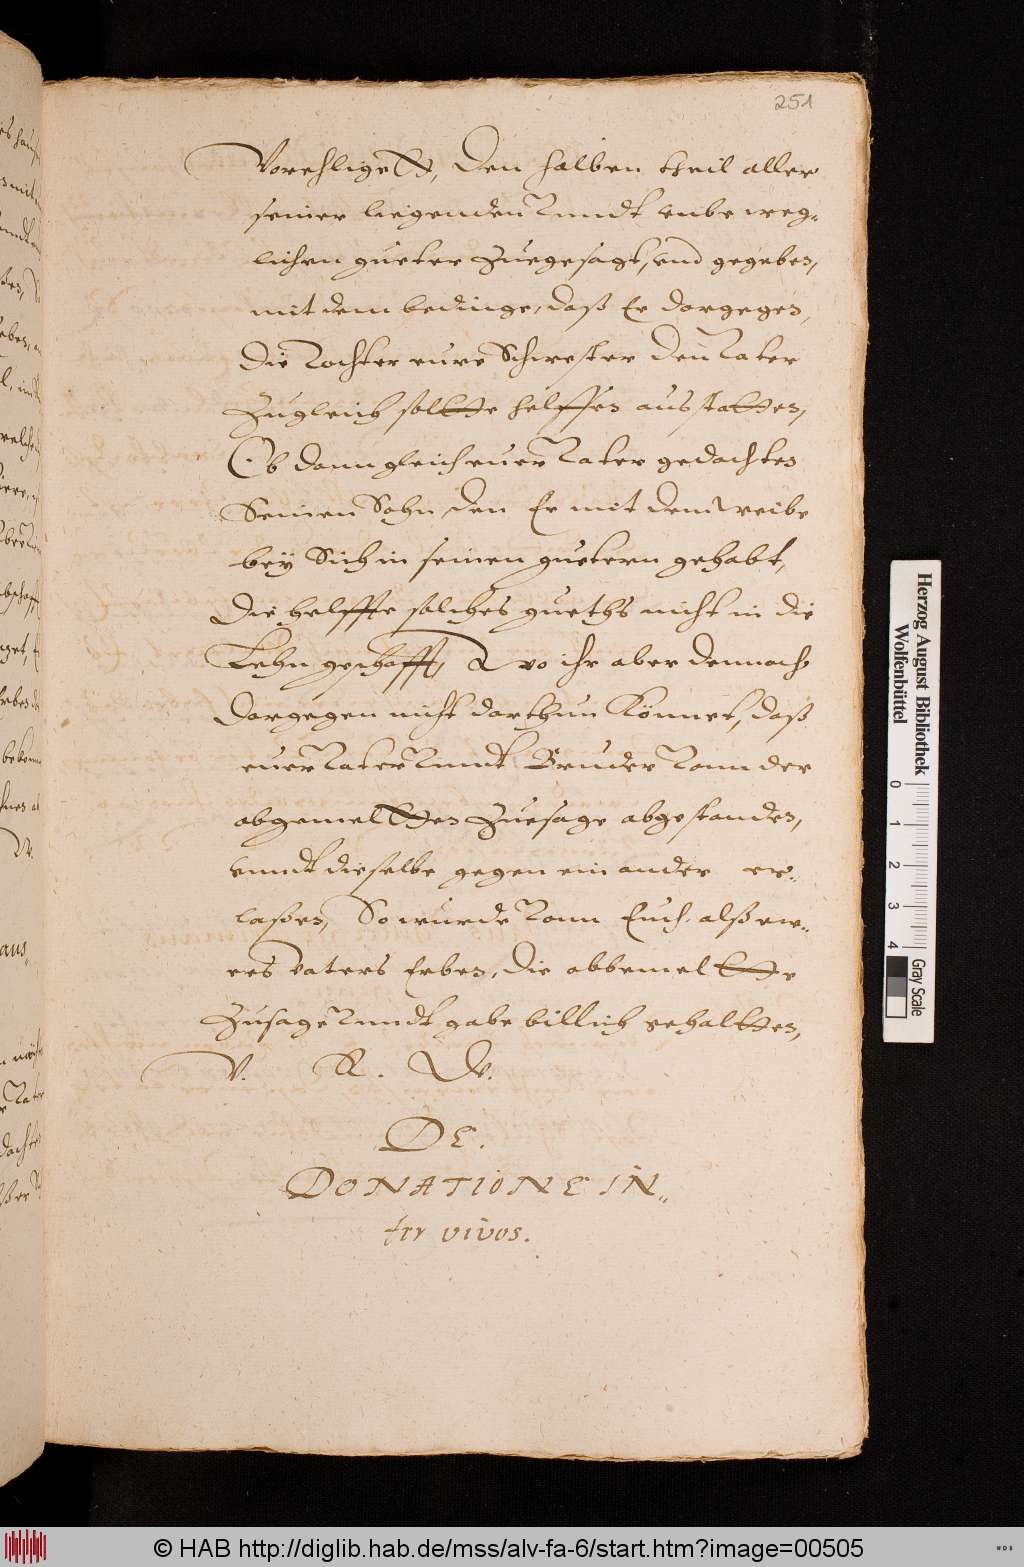 251
Vorehligett, den halben theil aller
seiner liegenden vnndt unbeweg-
lichen gueter zuegesagt, und gegeben,
mit dem bedinge, daß Er dargegen,
die Tochter eure Schwester den Vater
zugleich soltte helffen ausstatten,
Ob dann gleich euer Vater gedachten
Seinen Sohn, den Er mit dem Weibe
bey Sich in seinen guetern gehabt,
die helffte solches gueths nicht in die
Lehn geschafft, Wo ihr aber dennoch
dargegen nicht darthun Könnet, daß
euer Vater vnndt Bruder vonn der
abgemeltten Zuesage abgestanden,
vnndt dieselbe gegen ein ander er-
laßen, So wurde vonn Euch, alß ew-
res vaters Erben, die abbemeltte
Zusage vnndt gabe billich gehaltten,
V. R. W.
DE.
DONATIONE IN-
ter vivos.
Herzog August Bibliothek
Wolfenbüttel
0 1 2 3 4
Gray Scale
© HAB http://diglib.hab.de/mss/alv-fa-6/start.htm?image=00505